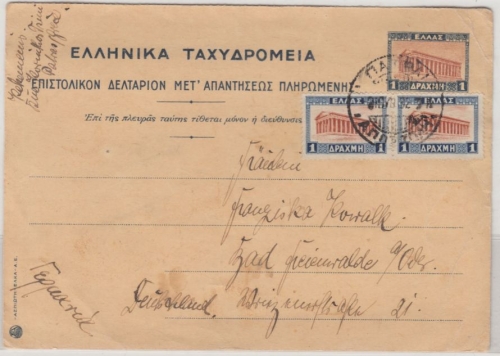 ΕΛΛΗΝΙΚΑ ΤΑΧΥΔΡΟΜΕΙΑ
ΕΠΙΣΤΟΛΙΚΟΝ ΔΕΛΤΑΡΙΟΝ ΜΕΤ' ΑΠΑΝΤΗΣΕΩΣ ΠΛΗΡΩΜΕΝΗΣ
Ἐπὶ τῆς πλευρᾶς ταύτης τίθεται μόνον ἡ διεύθυνσις
ΕΛΛΑΣ
1 ΔΡΑΧΜΗ 1
ΕΛΛΑΣ
1 ΔΡΑΧΜΗ 1
ΕΛΛΑΣ
1 ΔΡΑΧΜΗ 1
Fräulein
Franziska Kowalk
Bad Freienwalde a/Oder
Deutschland. Wriezenerstraße 21.
Γερμανία